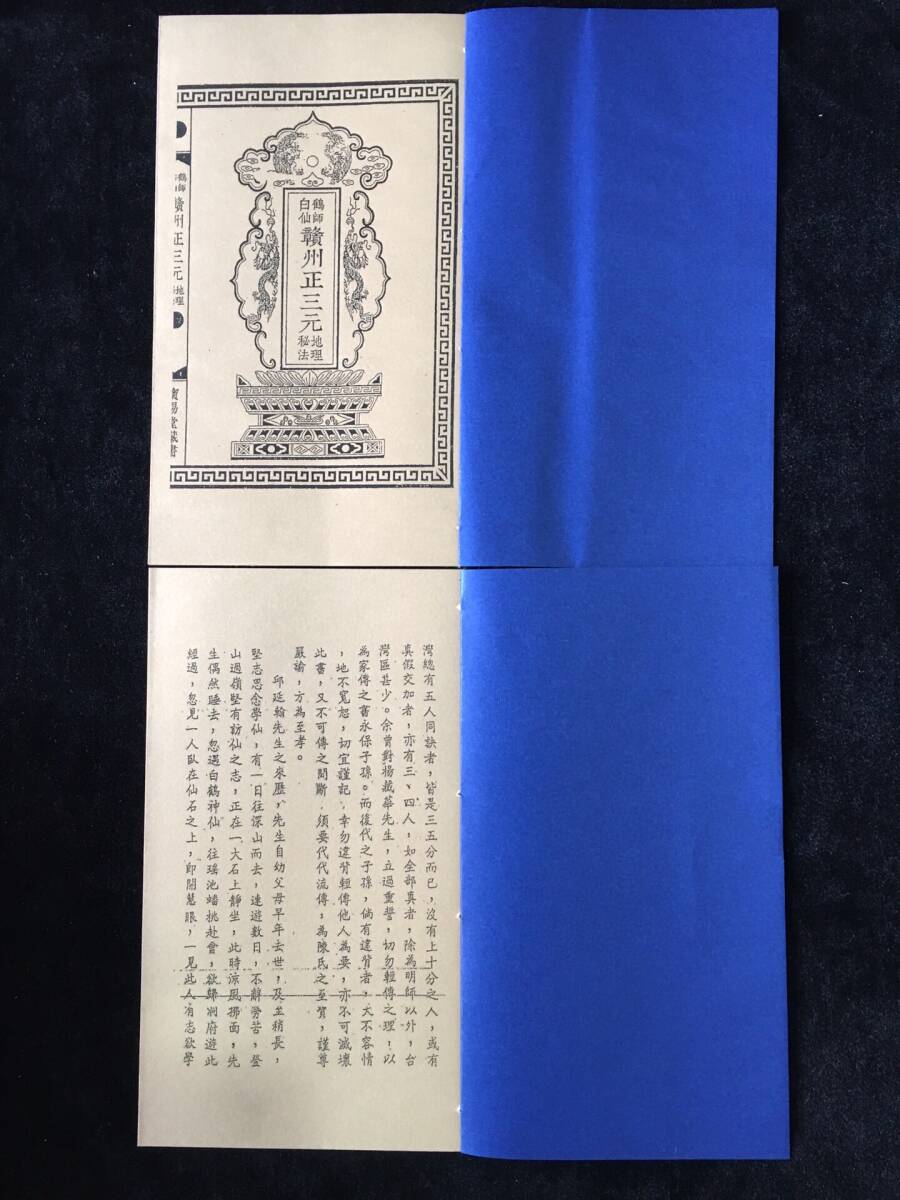 白鶴
仙師
贛州正三元
地理
秘法
贛州正三元
地理
藏書
灣總有五人同訣者，皆是三五分而已，沒有上十分之人，或有
真假交加者，亦有三、四人，如全部真者，除為明師以外，台
灣區甚少。余曾對楊藏華先生，立過重誓，切勿輕傳之理，以
為家傳之書永保子孫。而後代之子孫，倘有違背者，天不容情
，地不寬恕，切宜謹記，幸勿違背輕傳他人為要，亦不可滅壞
此書，又不可傳之間斷，須要代代流傳，為陳氏之至寶，謹尊
嚴諭，方為至孝。
邱廷翰先生之來歷，先生自幼父母早年去世，及至稍長，
堅志思念學仙，有一日往深山而去，連遊數日，不辭勞苦，登
山過嶺堅有訪仙之志，正在一大石上靜坐，此時涼風拂面，先
生偶然睡去，忽遇白鶴神仙，往瑤池蟠桃赴會，欲歸洞府遊此
經過，忽見一人臥在仙石之上，即開慧眼，一見此人有志欲學